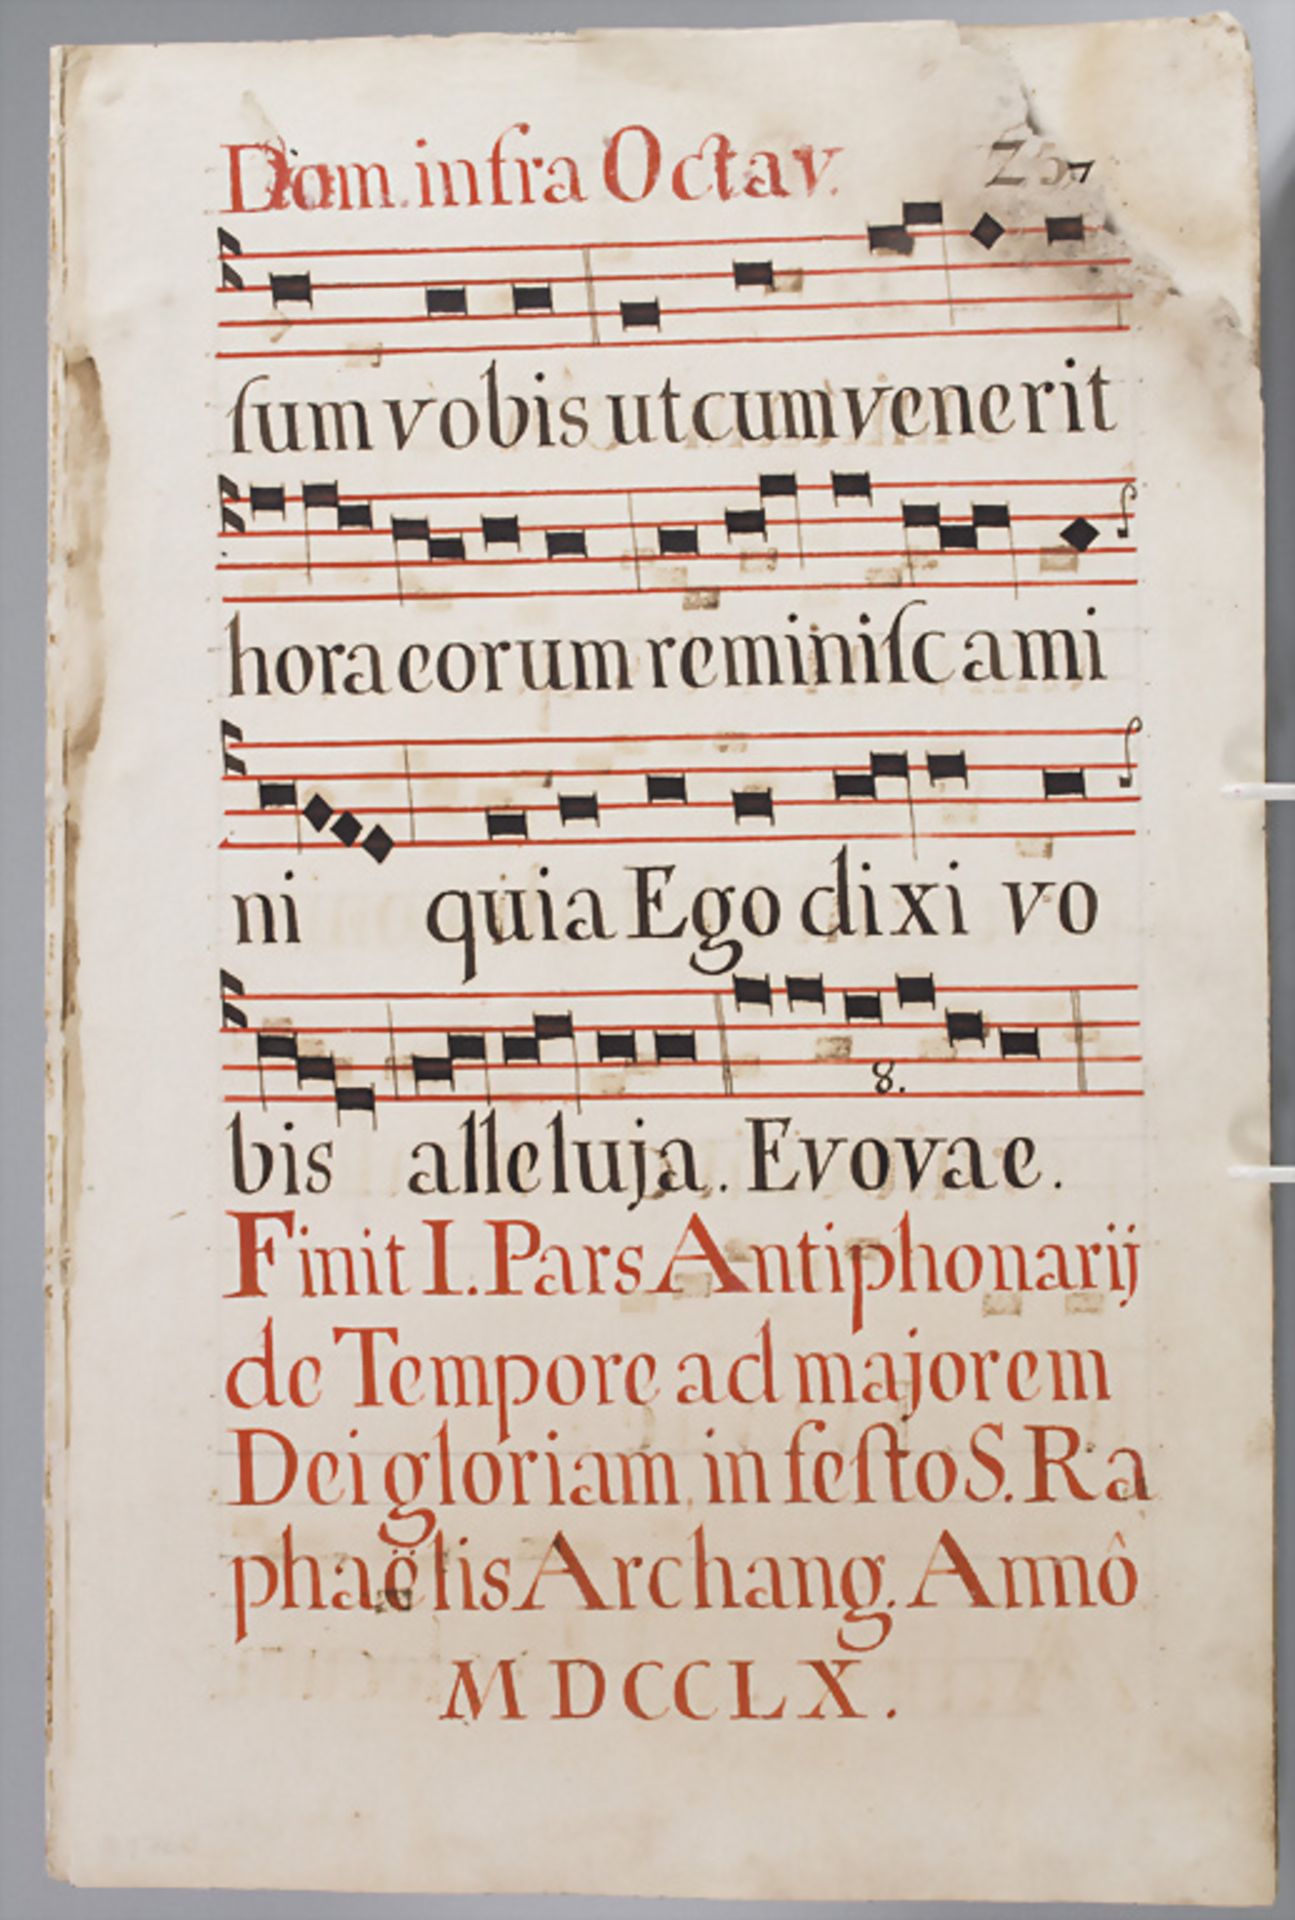 Dom. infra Octav.
ſum vobis ut cum venerit
hora eorum reminiſcami
ni quia Ego dixi vo
8.
bis alleluja. Evovae.
Finit I. Pars Antiphonarij
de Tempore ad majorem
Dei gloriam in feſto S. Ra
phaëlis Archang. Annô
MDCCLX.